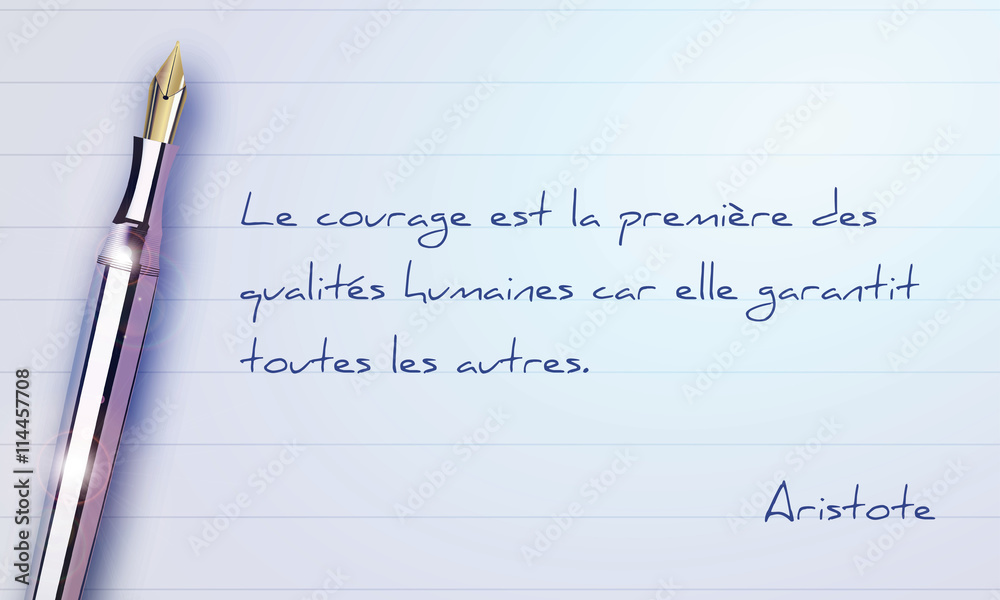 Le courage est la première des
qualités humaines car elle garantit
toutes les autres.
Aristote
Adobe Stock | #114457708